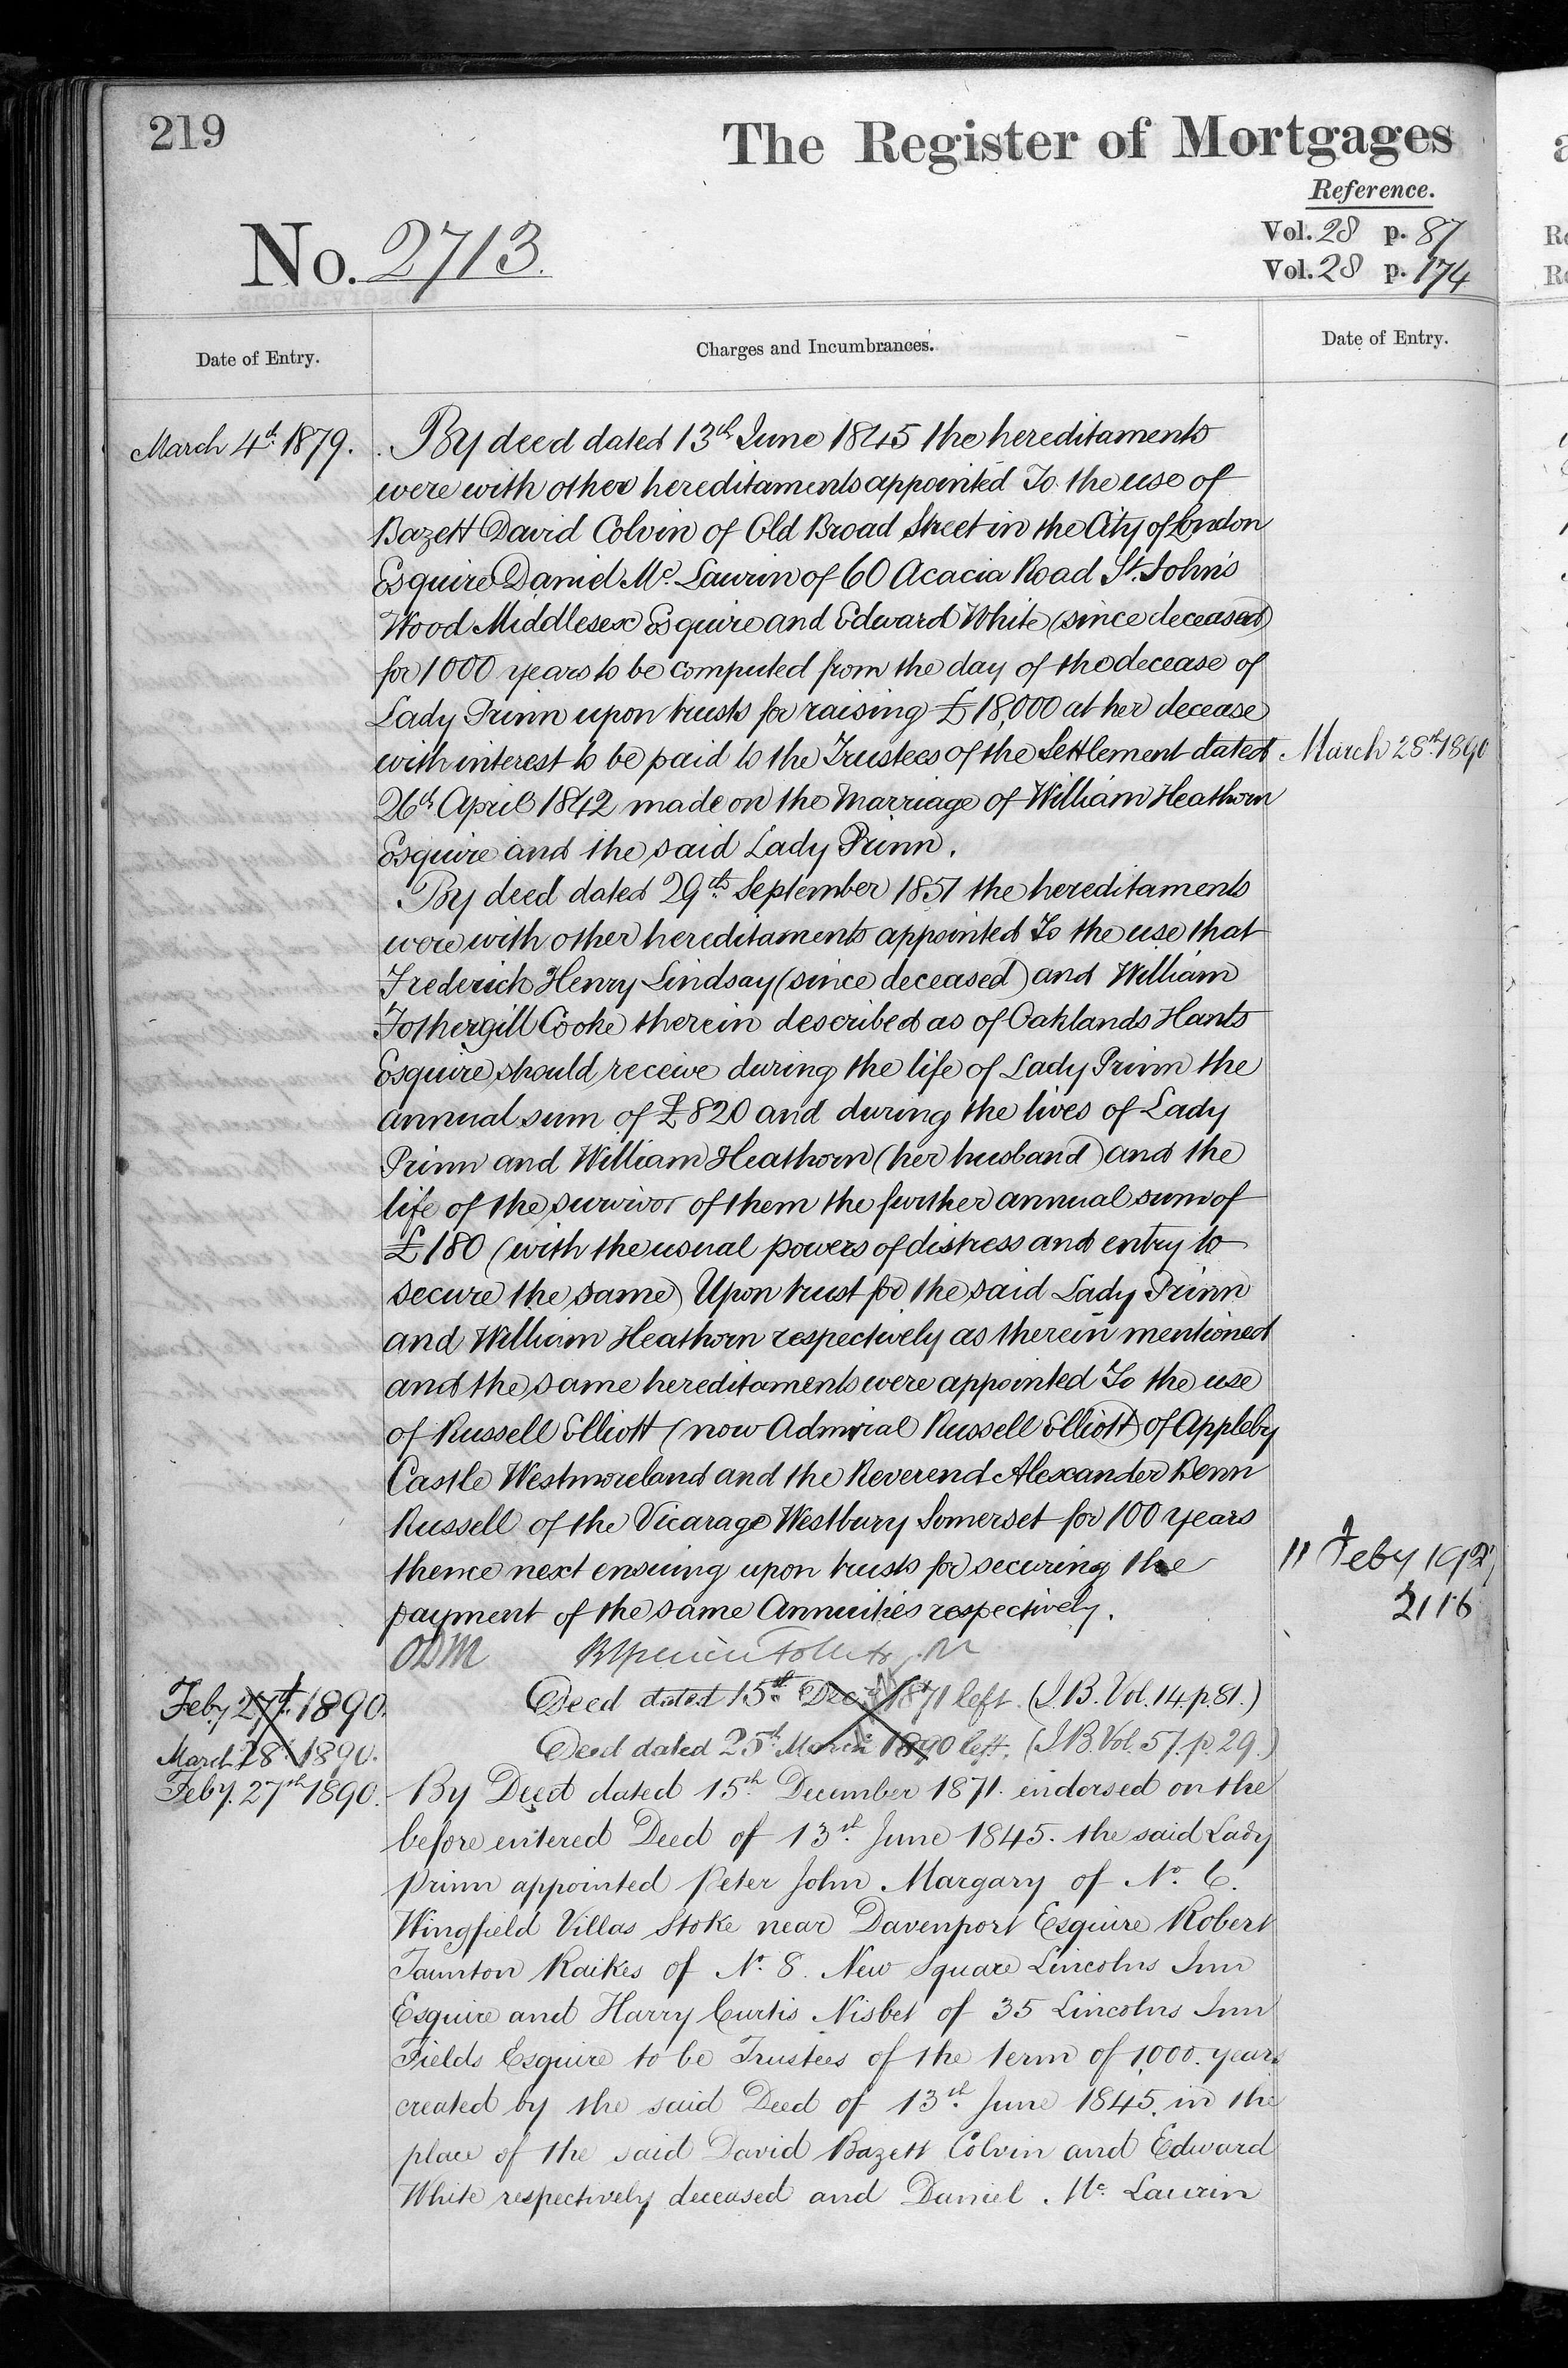 219
The Register of Mortgages
Reference.
No. 2713.
Vol. 28 p. 87
Vol. 28 p. 174
Date of Entry.
Charges and Incumbrances.
Date of Entry.
March 4th 1879.
By deed dated 13th June 1845 the hereditaments
were with other hereditaments appointed To the use of
Bazett David Colvin of Old Broad Street in the City of London
Esquire Daniel Mc. Laurin of 60 Acacia Road St. John's
Wood Middlesex Esquire and Edward White (since deceased)
for 1000 years to be computed from the day of the decease of
Lady Prinn upon trusts for raising £18,000 at her decease
with interest to be paid to the Trustees of the Settlement dated
March 28th 1890
26th April 1842 made on the Marriage of William Heathorn
Esquire and the said Lady Prinn.
By deed dated 29th September 1857 the hereditaments
were with other hereditaments appointed To the use that
Frederick Henry Lindsay (since deceased) and William
Fothergill Cooke therein described as of Oaklands Hants
Esquire should receive during the life of Lady Prinn the
annual sum of £820 and during the lives of Lady
Prinn and William Heathorn (her husband) and the
life of the survivor of them the further annual sum of
£180 (with the usual powers of distress and entry to
secure the same) Upon trust for the said Lady Prinn
and William Heathorn respectively as therein mentioned
and the same hereditaments were appointed To the use
of Russell Elliott (now Admiral Russell Elliott) of Appleby
Castle Westmoreland and the Reverend Alexander Benn
Russell of the Vicarage Westbury Somerset for 100 years
thence next ensuing upon trusts for securing the
11 Feby
payment of the same Annuities respectively.
2116
ODM
Feby 27th 1890.
Deed dated 15th Dec. 1871 left. (I.B. Vol. 14. p. 81.)
March 28 1890.
Deed dated 25th March 1890 left. (I.B. Vol. 57. p. 29.)
Feby. 27th 1890.
By Deed dated 15th December 1871. endorsed on the
before entered Deed of 13th June 1845. the said Lady
Prinn appointed Peter John Margary of No. 6.
Wingfield Villas Stoke near Davenport Esquire Robert
Taunton Raikes of No. 8. New Square Lincolns Inn
Esquire and Harry Curtis Nisbet of 35 Lincolns Inn
Fields Esquire to be Trustees of the term of 1,000. years
created by the said Deed of 13th June 1845. in the
place of the said David Bazett Colvin and Edward
White respectively deceased and Daniel Mc. Laurin